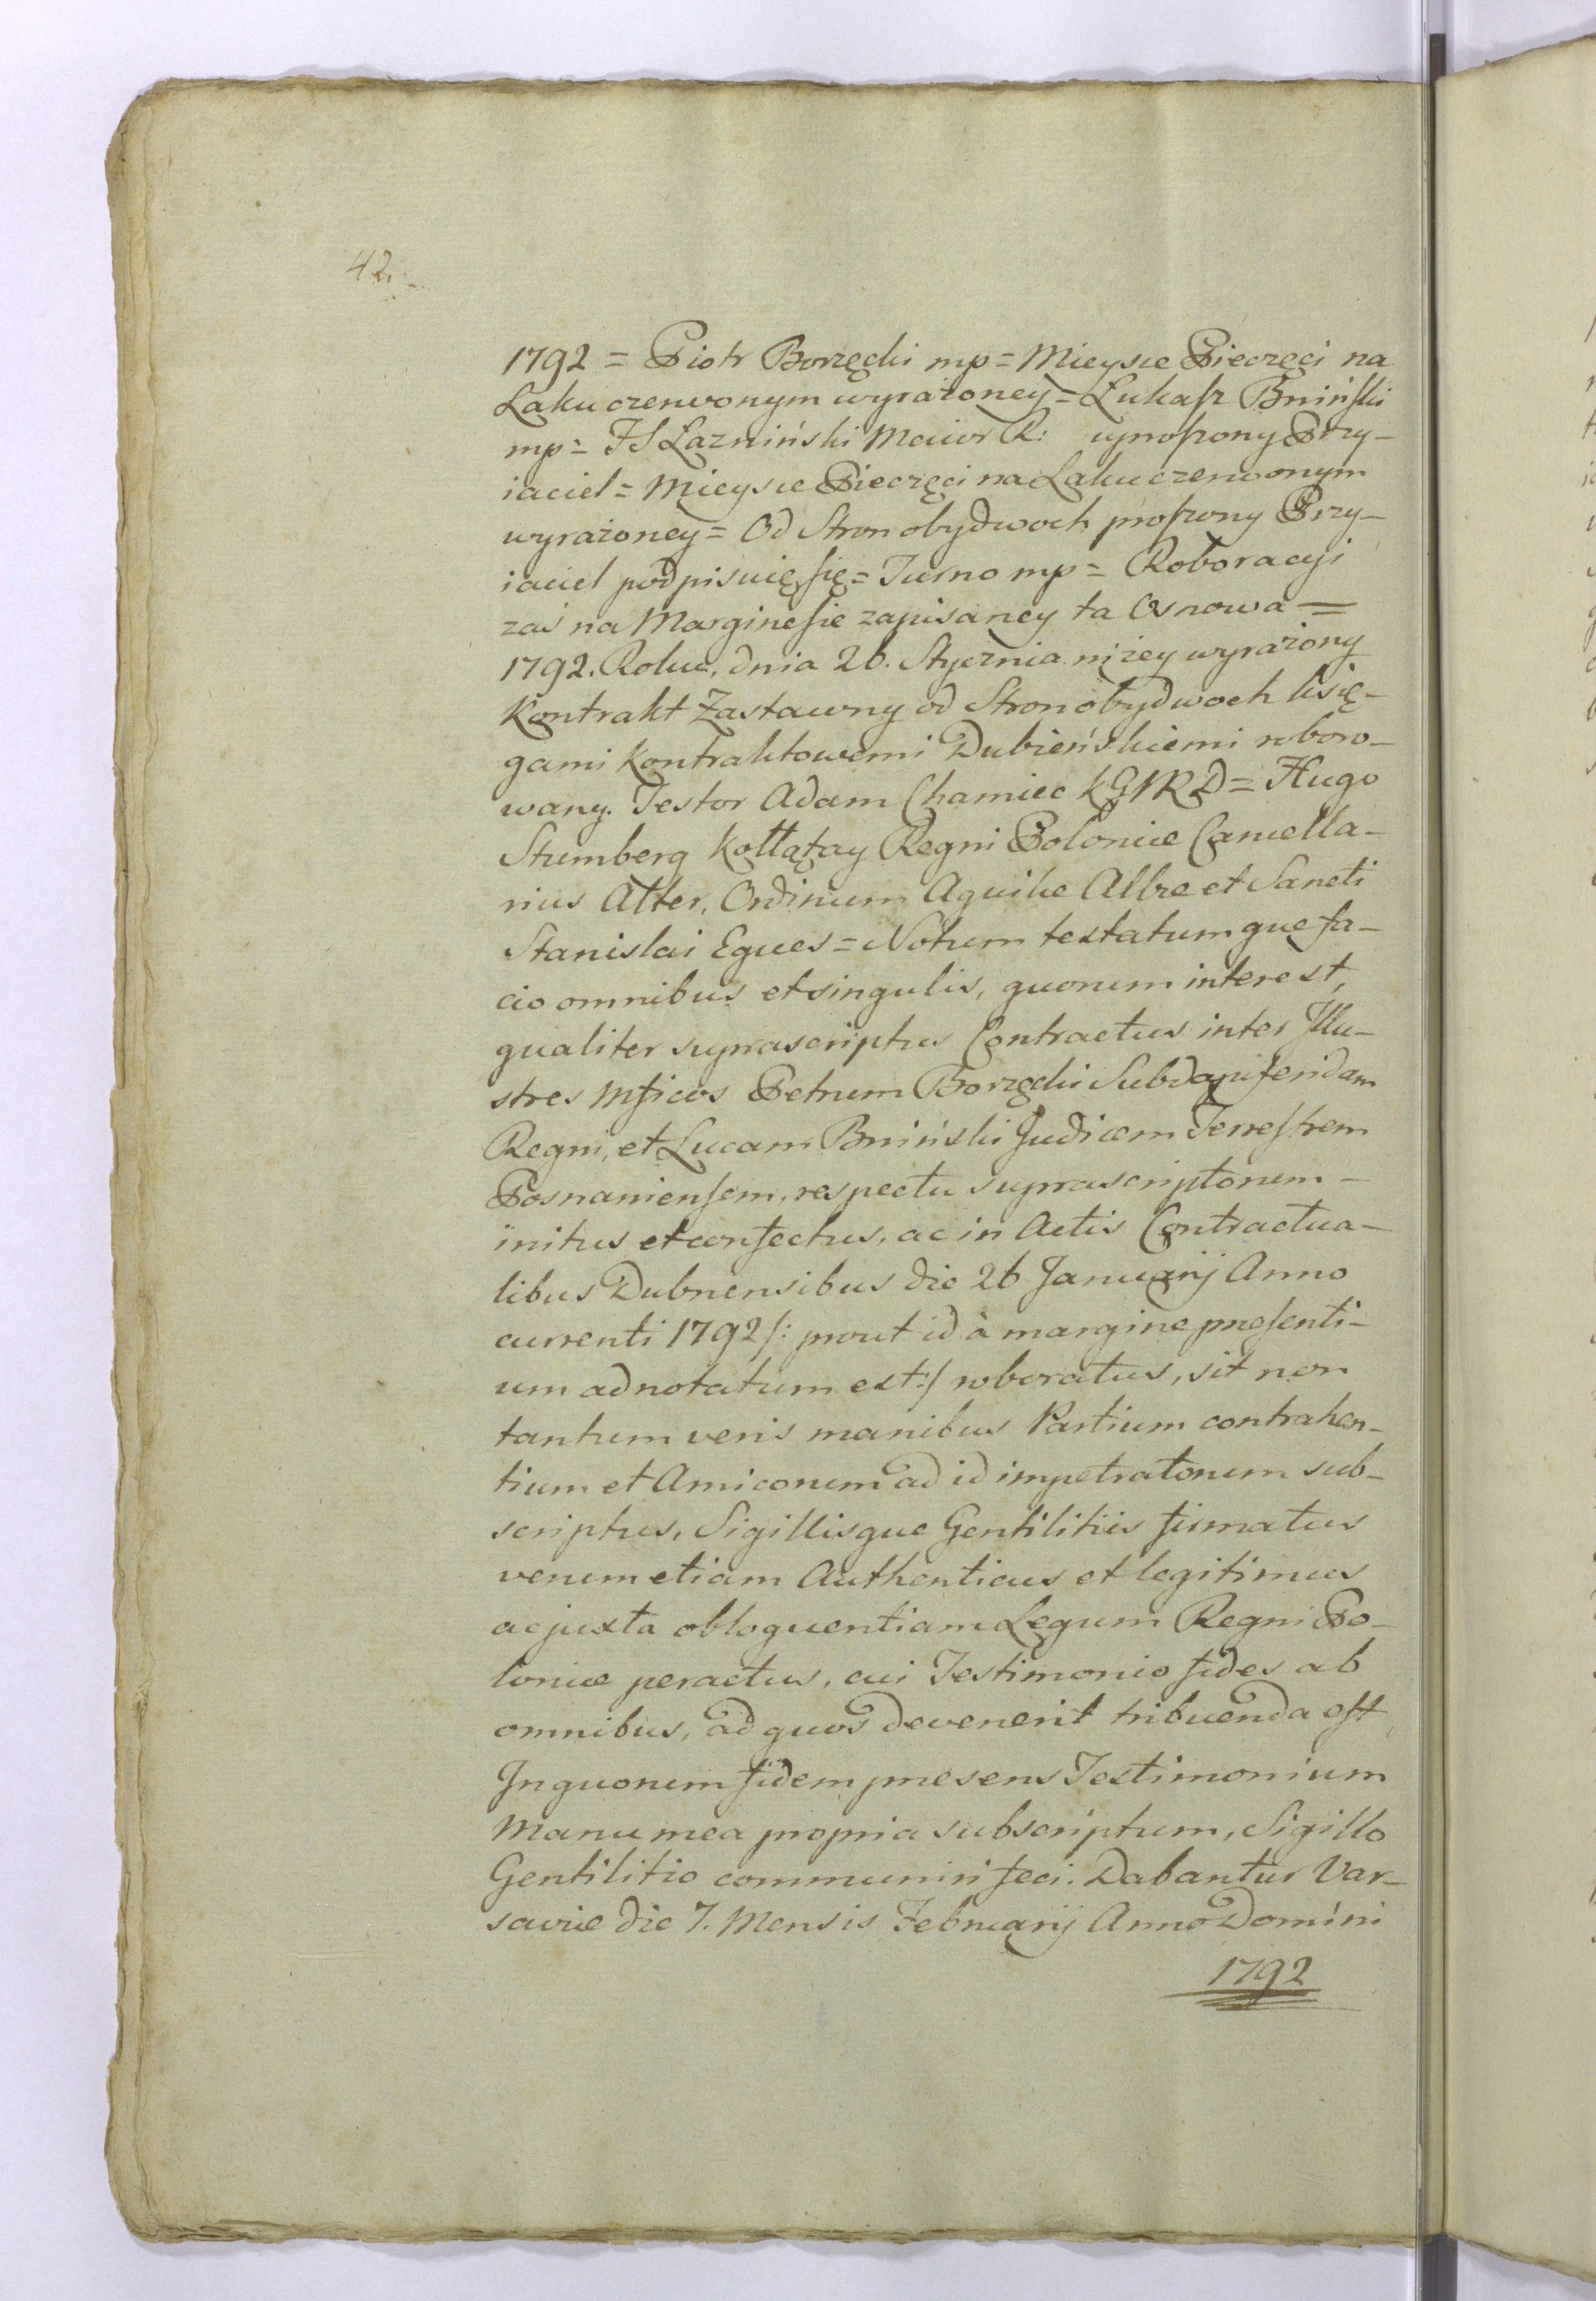 42.
1792 = Piotr Borzęcki mp = Mieysce Pieczęci na
Laku czerwonym wyrażoney = Łukasz Bniński
mp = JS Łazniński Maior R: uproszony Przy-
iaciel = Mieysce Pieczęci na Laku czerwonym
wyrażoney = Od Stron obydwoch proszony Przy-
iaciel podpisuię się = Turno mp = Roboracyi
zaś na Marginesie zapisaney ta Osnowa =
1792. Roku, dnia 26. Stycznia niżey wyrażony
Kontrakt Zastawny od Stron obydwoch Księ-
gami Kontraktowemi Dubieńskiemi roboro-
wany. Testor Adam Chamiec KGNRD = Hugo
Stumberg Kołłątay Regni Poloniæ Cancella-
rius Alter, Ordinum Aquilæ Albæ et Sancti
Stanislai Eques = Notum testatumque fa-
cio omnibus et singulis, quorum interest,
qualiter suprascriptus Contractus inter Illu-
stres Mficos Petrum Borzęcki Subdapiferidam
Regni, et Lucam Bniński Judicem Terrestrem
Posnaniensem, respectu suprascriptorum -
initus et confectus, ac in Actis Contractua-
libus Dubnensibus die 26 Januarij Anno
currenti 1792 /: prout id à margine præsenti-
um adnotatum est :/ roboratus, sit non
tantum veris manibus Partium contrahen-
tium et Amicorum ad id impetratorum sub-
scriptus, Sigillisque Gentilitiis firmatus
verum etiam Authenticus et legitimus
ac juxta obloquentiam Legum Regni Po-
loniæ peractus, cui Testimonio fides ab
omnibus, ad quos devenerit tribuenda est
In quorum fidem præsens Testimonium
Manu mea propria subscriptum, Sigillo
Gentilitio communiri feci. Dabantur Var-
saviæ die 7. Mensis Februarij Anno Domini
1792